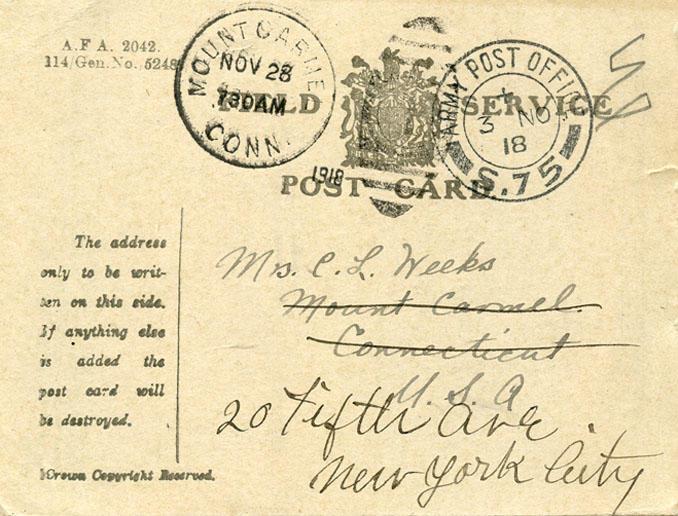 A.F.A. 2042.
114/Gen. No. 5248
MOUNT CARMEL
NOV 28
730AM
CONN.
1918
FIELD SERVICE
POST CARD.
ARMY POST OFFICE
3 NO
18
S.75
The address
only to be writ-
ten on this side.
If anything else
is added the
post card will
be destroyed.
Crown Copyright Reserved.
Mrs. C. L. Weeks
Mount Carmel.
Connecticut
U. S. A
20 Fifth Ave.
New York City